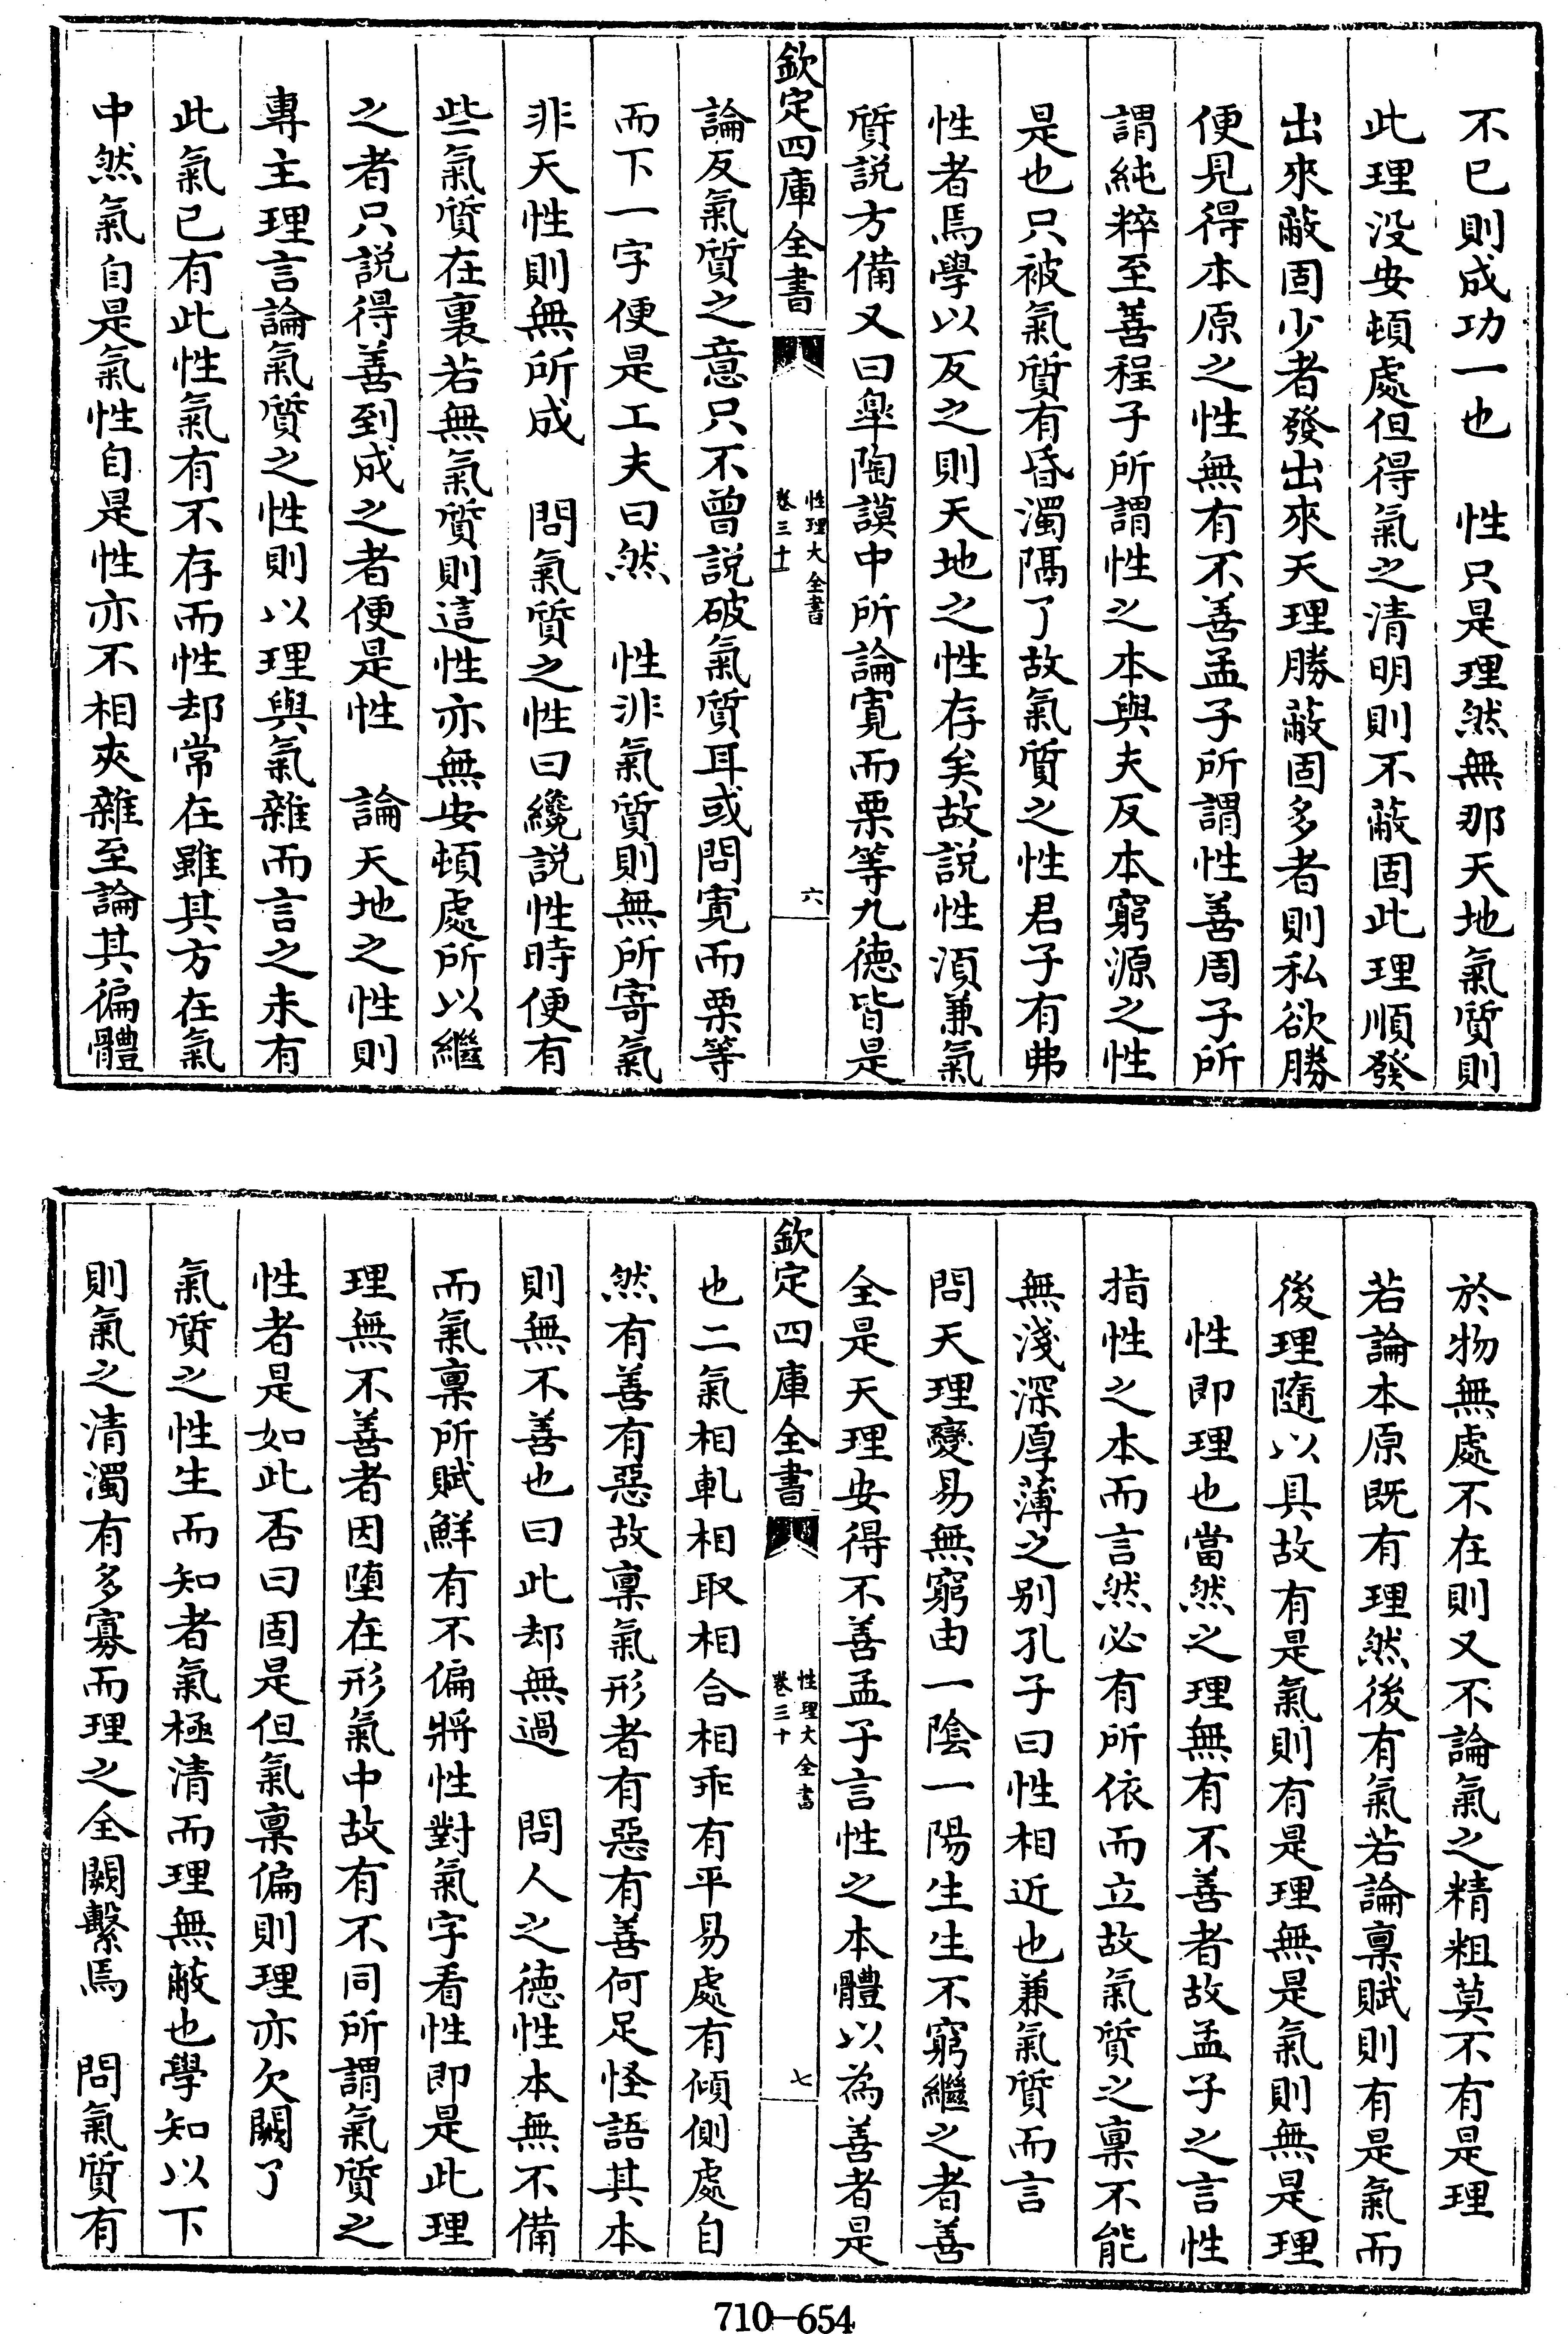 不已則成功一也　性只是理然無那天地氣質則
此理没安頓處但得氣之清明則不蔽固此理順發
出來蔽固少者發出來天理勝蔽固多者則私欲勝
便見得本原之性無有不善孟子所謂性善周子所
謂純粹至善程子所謂性之本與夫反本窮源之性
是也只被氣質有昏濁隔了故氣質之性君子有弗
性者焉學以反之則天地之性存矣故説性須兼氣
質説方備又曰臯陶謨中所論寛而栗等九德皆是
欽定四庫全書
性理大全書
卷三十一
六
論反氣質之意只不曾説破氣質耳或問寛而栗等
而下一字便是工夫曰然　性非氣質則無所寄氣
非天性則無所成　問氣質之性曰纔説性時便有
些氣質在裏若無氣質則這性亦無安頓處所以繼
之者只説得善到成之者便是性　論天地之性則
專主理言論氣質之性則以理與氣雜而言之未有
此氣已有此性氣有不存而性却常在雖其方在氣
中然氣自是氣性自是性亦不相夾雜至論其徧體
於物無處不在則又不論氣之精粗莫不有是理
若論本原既有理然後有氣若論禀賦則有是氣而
後理隨以具故有是氣則有是理無是氣則無是理
性即理也當然之理無有不善者故孟子之言性
指性之本而言然必有所依而立故氣質之禀不能
無淺深厚薄之别孔子曰性相近也兼氣質而言
問天理變易無窮由一陰一陽生生不窮繼之者善
全是天理安得不善孟子言性之本體以為善者是
欽定四庫全書
性理大全書
卷三十
七
也二氣相軋相取相合相乖有平易處有傾側處自
然有善有惡故禀氣形者有惡有善何足怪語其本
則無不善也曰此却無過　問人之德性本無不備
而氣禀所賦鮮有不偏將性對氣字看性即是此理
理無不善者因堕在形氣中故有不同所謂氣質之
性者是如此否曰固是但氣禀偏則理亦欠闕了
氣質之性生而知者氣極清而理無蔽也學知以下
則氣之清濁有多寡而理之全闕繫焉　問氣質有
710-654